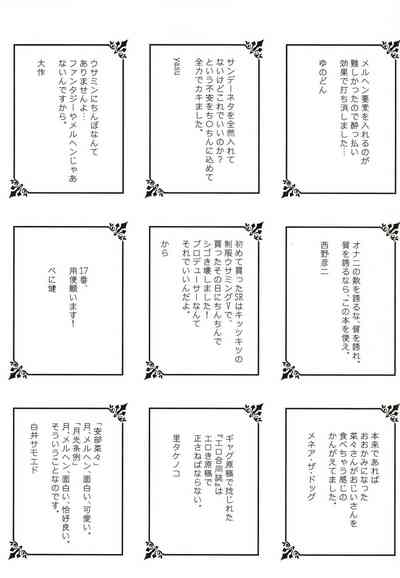 メルヘン要素を入れるのが
難しかったので酔っ払い
効果で打ち消しました…
ゆのどん
サンデーネタを全然入れて
ないけどこれでいいのか?
という不安をち〇ちんに込めて
全力でカキました。
yasu
ウサミンにちんぽなんて
ありませんよ…
ファンタジーやメルヘンじゃあ
ないんですから。
大作
オナニの数を誇るな、質を誇れ。
質を誇るなら、この本を使え。
西野彦二
初めて買ったSRはキッツキツの
制服ウサミングVで、
買ったその日にちんちんで
シゴき壊しました!
プロデューサーなんて
それでいいんだよ。
から
17番。
用便願います!
べに鍵
本来であれば
おおかみになった
菜々さんがおじいさんを
食べちゃう感じの
かんがえてました。
メネア・ザ・ドッグ
ギャグ原稿で捻じれた
『エロ合同誌』は
エロき原稿で
正さねばならない。
里タケノコ
「安部菜々」
月、メルヘン、面白い、可愛い。
「月光条例」
月、メルヘン、面白い、恰好良い。
そういうことなのです。
白井サモエド